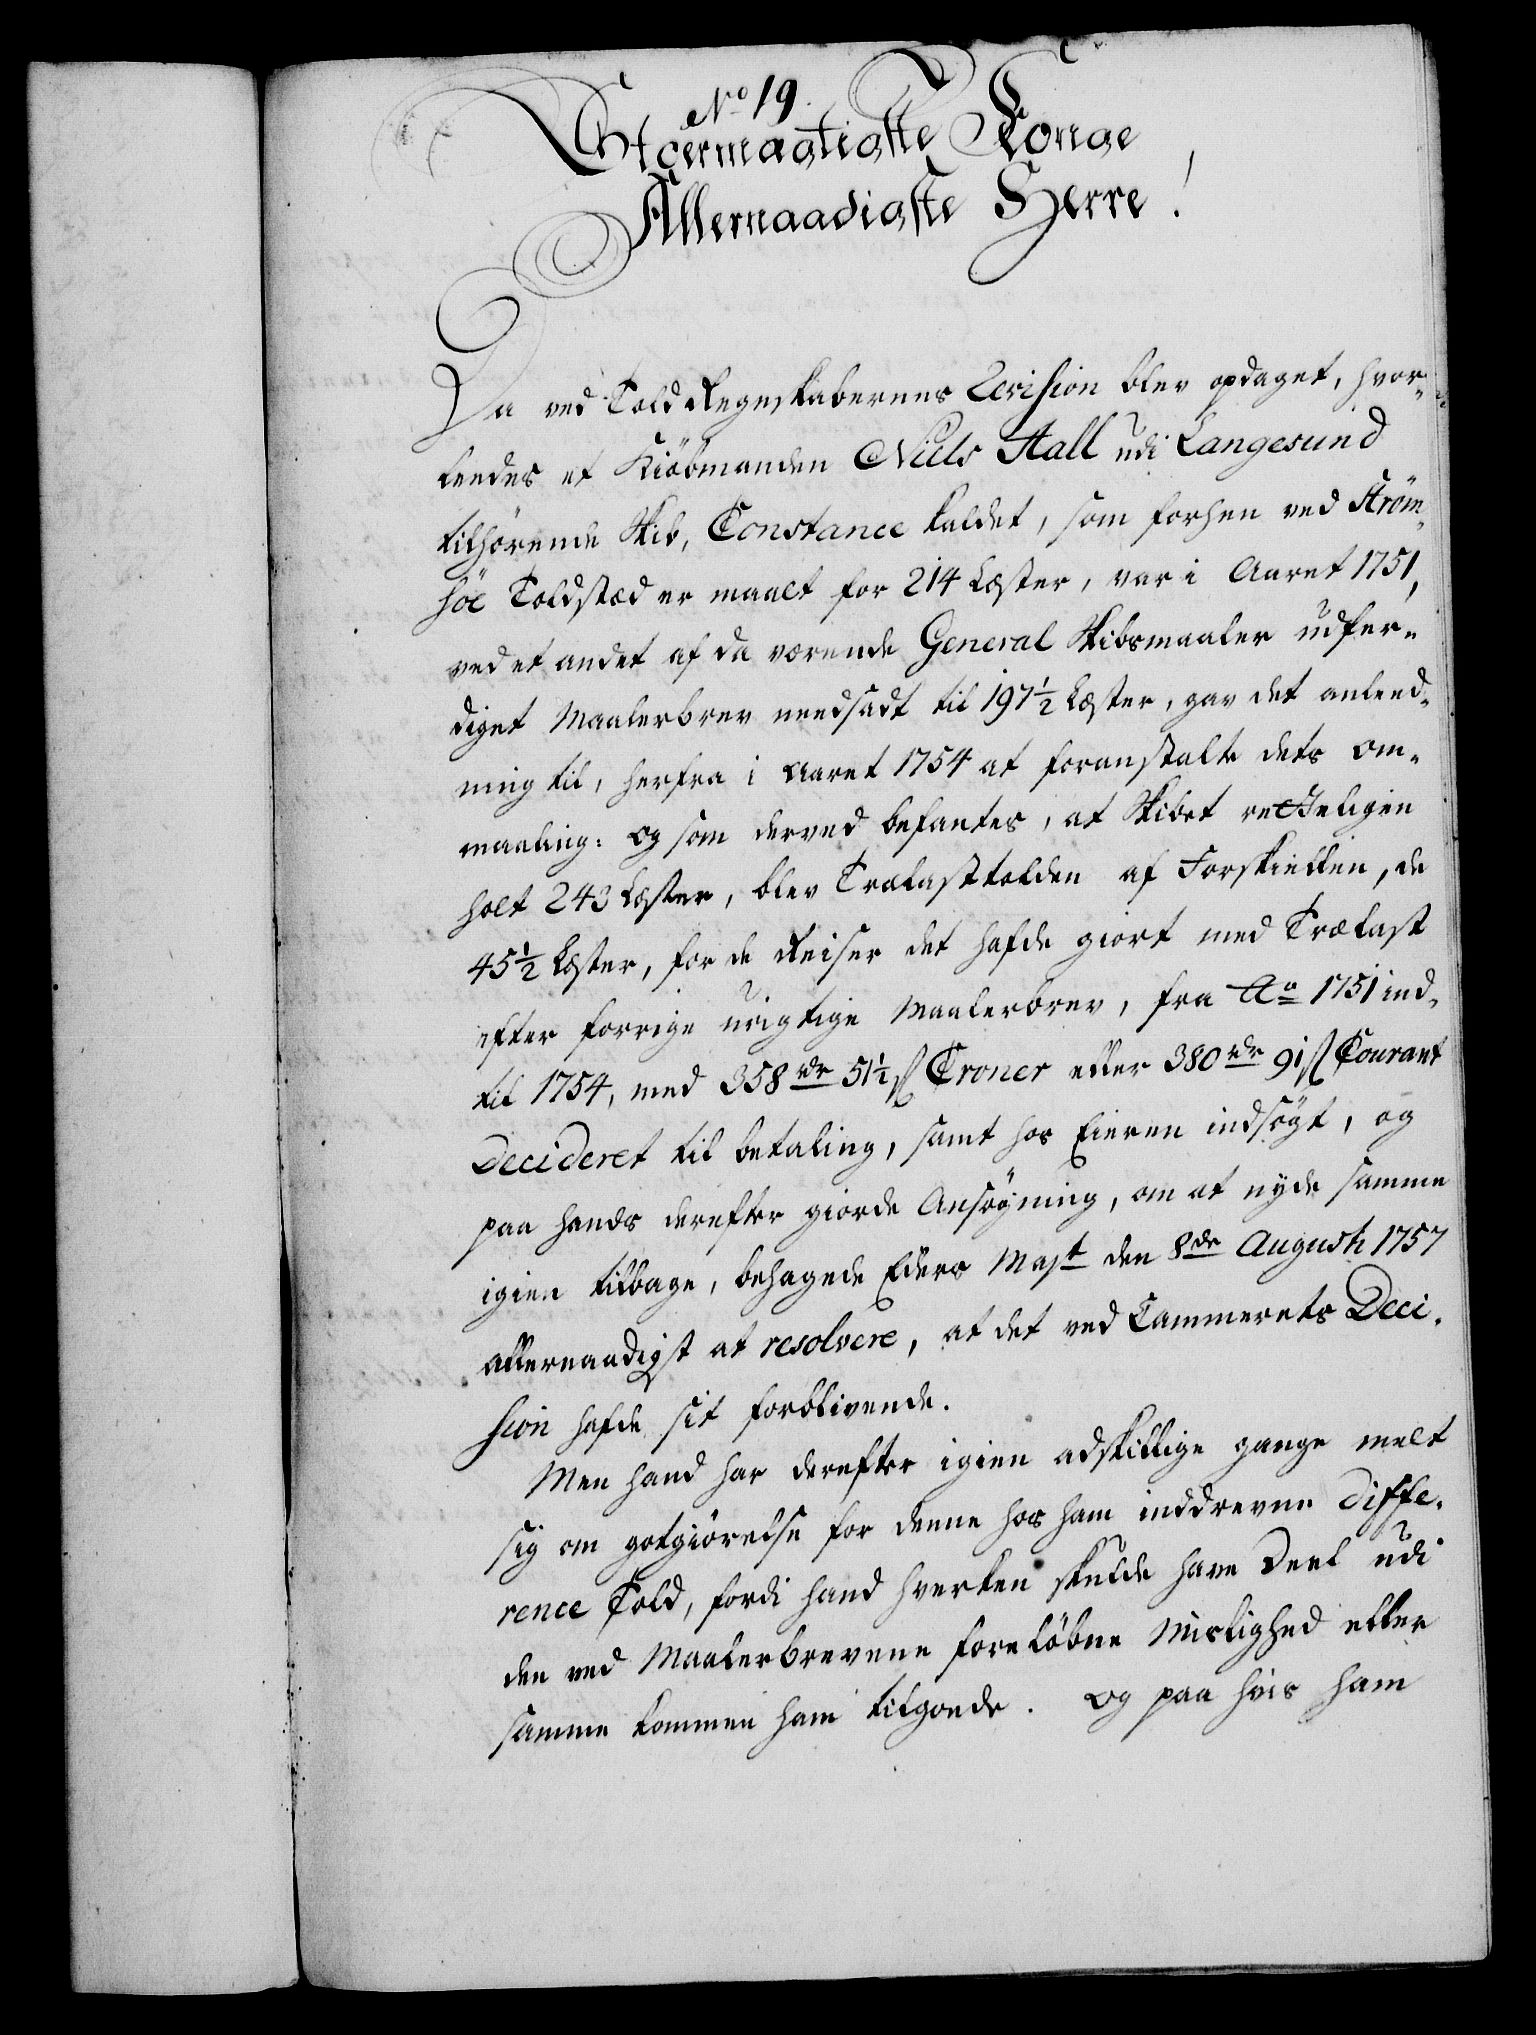 No 19.
Stoermægtigste Konge
Allernaadigste Herre!
Da ved Told Regnskabernes Revision blev opdaget, hvor-
ledes et Kiöbmanden Niels Stall udi Langesund
tilhörende Skib, Constance kaldet, som forhen ved Ström-
söe Toldstæd er maalt for 214 Læster, var i Aaret 1751,
ved et andet af da værende General Skibsmaaler udfær-
diget Maalerbrev needsadt til 197½ Læster, gav det anleed-
ning til, herfra i Aaret 1754 at foranstalte dets om-
maaling: og som derved befantes, at Skibet retteligen
holt 243 Læster, blev Trælasttolden af Forskiellen, de
45½ Læster, for de Reiser det hafde giort med Trælast
efter forrige urigtige Maalerbrev, fra Ao 1751 ind-
til 1754, med 358 rdr 51½ ß Croner eller 380 rdr 91 ß Courant
Decideret til betaling, samt hos Eieren indsögt, og
paa hands derefter giorde Ansögning, om at nyde samme
igien tilbage, behagede Eders Mayt den 8de Augusti 1757
allernaadigst at resolvere, at det ved Cammerets Deci-
sion hafde sit forblivende.
Men hand har derefter igien adskillige gange melt
sig om gotgiörelse for denne hos ham inddrevne Diffe-
rence Told, fordi hand hverken skulde have Deel udi
den ved Maalerbrevene foreløbne Mislighed eller
samme kommen ham tilgoede. Og paa hvis ham